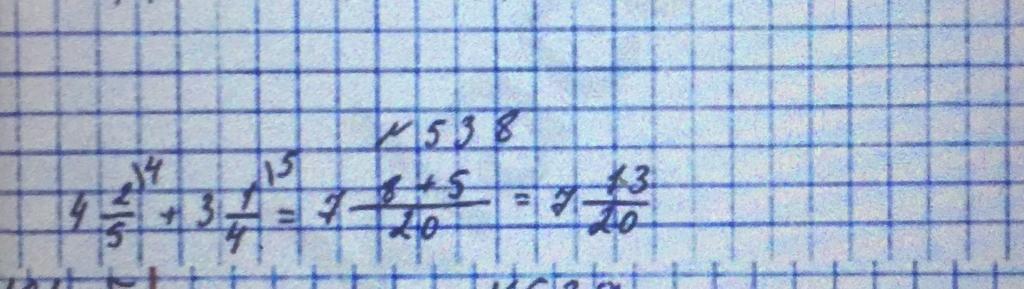 № 538
4 2/5 \4 + 3 1/4 \5 = 7 8+5/20 = 7 13/20